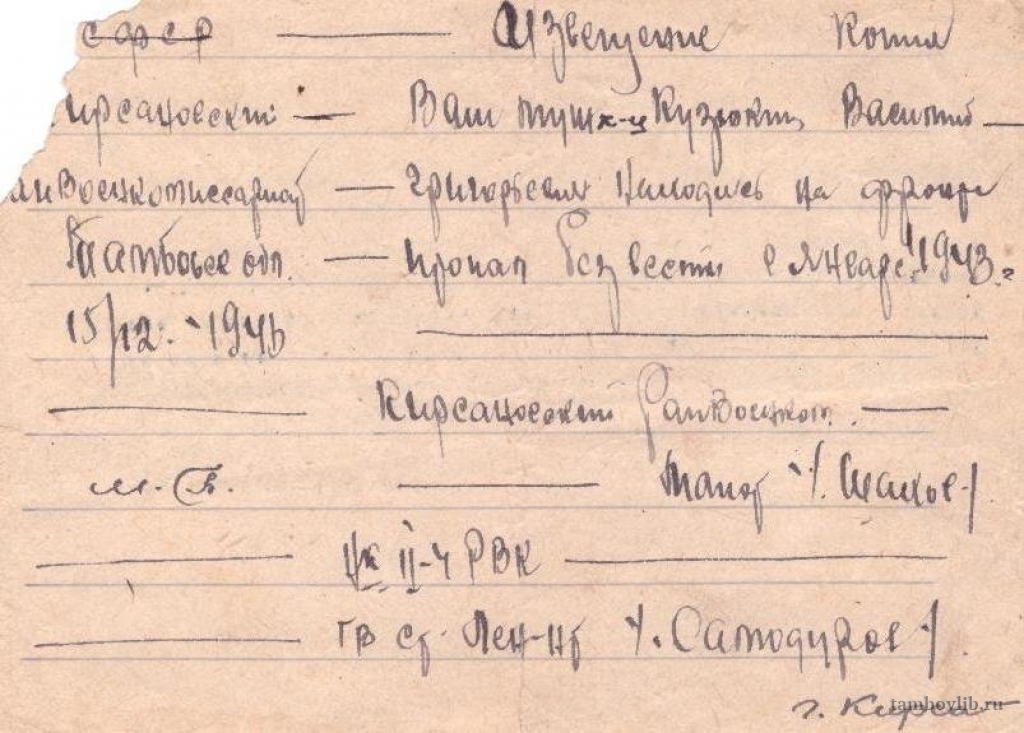 СФСР — Извещение Копия
ирсановский — Ваш муж к-ц Кузюкин Василий —
айвоенкомиссариат — Григорьевич находясь на фронте
Тамбовск обл. — пропал без вести в Январе 1943 г.
15/12. 1943
— Кирсановский Райвоенком. —
М.П. — Майор /. Шахов /
— Нк II-ч РВК —
— гв ст. лен-нт /. Самодуров /
г. Кирса
tambovlib.ru